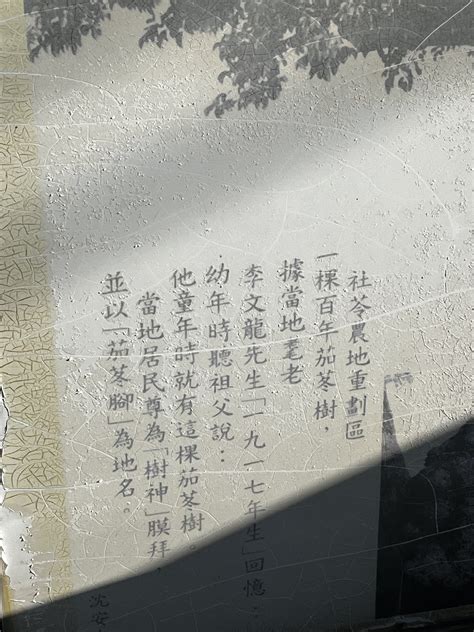 社苓農地重劃區
一棵百年茄苳樹，
據當地耄老
李文龍先生「一九一七年生」回憶：
幼年時聽祖父說：
他童年時就有這棵茄苳樹。
當地居民尊為「樹神」膜拜，
並以「茄苳腳」為地名。
沈安